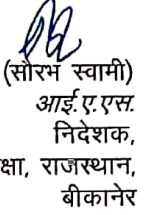 (सौरभ स्वामी)
आई.ए.एस.
निदेशक,
क्षा, राजस्थान,
बीकानेर